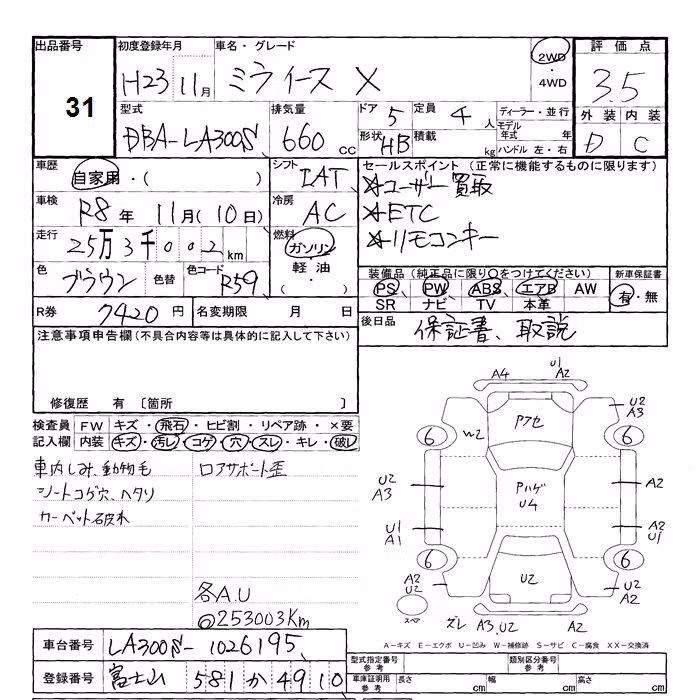 出品番号 31
初度登録年月 H23 11月
車名・グレード ミライース X
2WD・4WD
評価点 3.5
型式 DBA-LA300S
排気量 660 cc
ドア 5
定員 4人
形状 HB
積載 kg
ディーラー・並行
モデル年式 年
ハンドル 左・右
外装 内装
D C
車歴 自家用・( )
シフト IAT
車検 R8年 11月(10日)
冷房 AC
走行 25万3千002km
燃料 ガソリン・軽油・
色 ブラウン 色替 色コード R59
セールスポイント (正常に機能するものに限ります)
☆ユーザー買取
☆ETC
☆リモコンキー
装備品 (純正品に限り○をつけてください)
新車保証書
PS PW ABS エアB AW
SR ナビ TV 本革
有・無
R券 7420円 名変期限 月 日
後日品 保証書、取説
注意事項申告欄(不具合内容等は具体的に記入して下さい)
修復歴 有 〔箇所 〕
検査員 FW キズ・飛石・ヒビ割・リペア跡・×要
記入欄 内装 キズ・汚レ・コゲ・穴・スレ・キレ・破レ
車内しみ、動物毛 ロアサポート歪
シートコゲ穴、ヘタリ
カーペット破れ
各A.U
@253003Km
A4 U1 A2
U2 A3
Pクセ
W2
6 6
Pハゲ
U4
U2 A3
A2
U1 A1
A2 U1
6 6
A2 U2
U2
A2
スペア
ズレ A3.U2 A2
A-キズ E-エクボ U-凹み W-補修跡 S-サビ C-腐食 XX-交換済
車台番号 LA300S-1026195
登録番号 富士山 581 か 4910
型式指定番号 参考
類別区分番号 参考
車庫証明用 参考 長さ cm 幅 cm 高さ cm